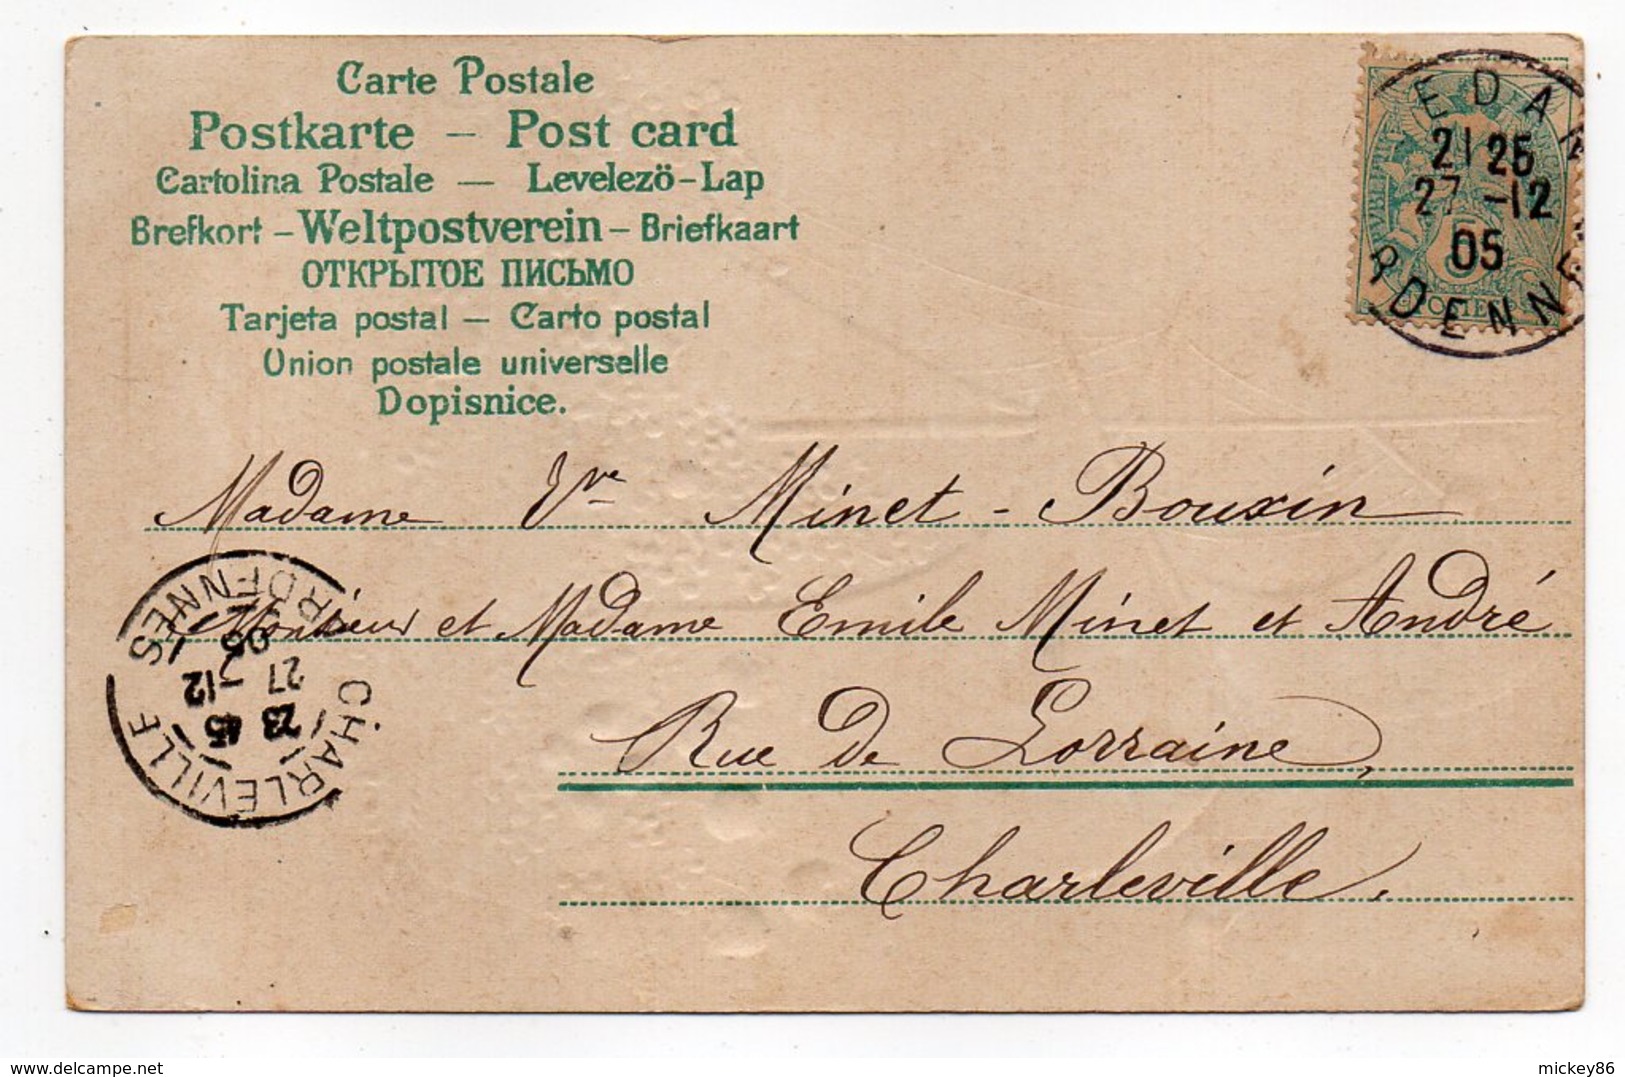 Carte Postale
Postkarte – Post card
Cartolina Postale — Levelezö-Lap
Brefkort – Weltpostverein – Briefkaart
ОТКРЫТОЕ ПИСЬМО
Tarjeta postal — Carto postal
Union postale universelle
Dopisnice.
EDAN
21 25
27 -12
05
RDENN
Madame Vve Minet - Bouxin
Monsieur et Madame Emile Minet et André
Rue de Lorraine,
Charleville.
CHARLEVILLE
23 45
27 -12
05
ARDENNES
delcampe.net
mickey86